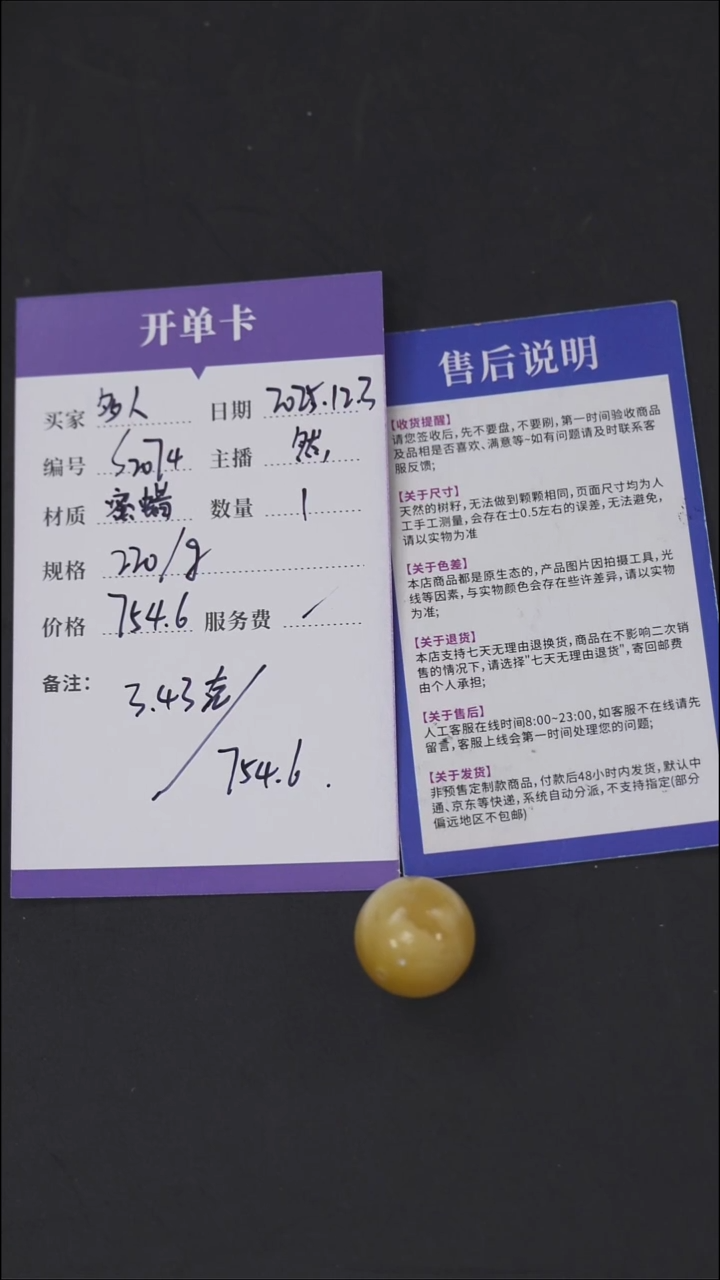 开单卡
买家 多人 日期 2025.12.3
编号 S2074 主播 然
材质 蜜蜡 数量 1
规格 220/g
价格 754.6 服务费 /
备注：
3.43克/
754.6.
售后说明
【收货提醒】
请您签收后,先不要盘,不要刷,第一时间验收商品
及品相是否喜欢、满意等~如有问题请及时联系客
服反馈;
【关于尺寸】
天然的树籽,无法做到颗颗相同,页面尺寸均为人
工手工测量,会存在士0.5左右的误差,无法避免,
请以实物为准
【关于色差】
本店商品都是原生态的,产品图片因拍摄工具,光
线等因素,与实物颜色会存在些许差异,请以实物
为准;
【关于退货】
本店支持七天无理由退换货,商品在不影响二次销
售的情况下,请选择"七天无理由退货",寄回邮费
由个人承担;
【关于售后】
人工客服在线时间8:00~23:00,如客服不在线请先
留言,客服上线会第一时间处理您的问题;
【关于发货】
非预售定制款商品,付款后48小时内发货,默认中
通、京东等快递,系统自动分派,不支持指定(部分
偏远地区不包邮)